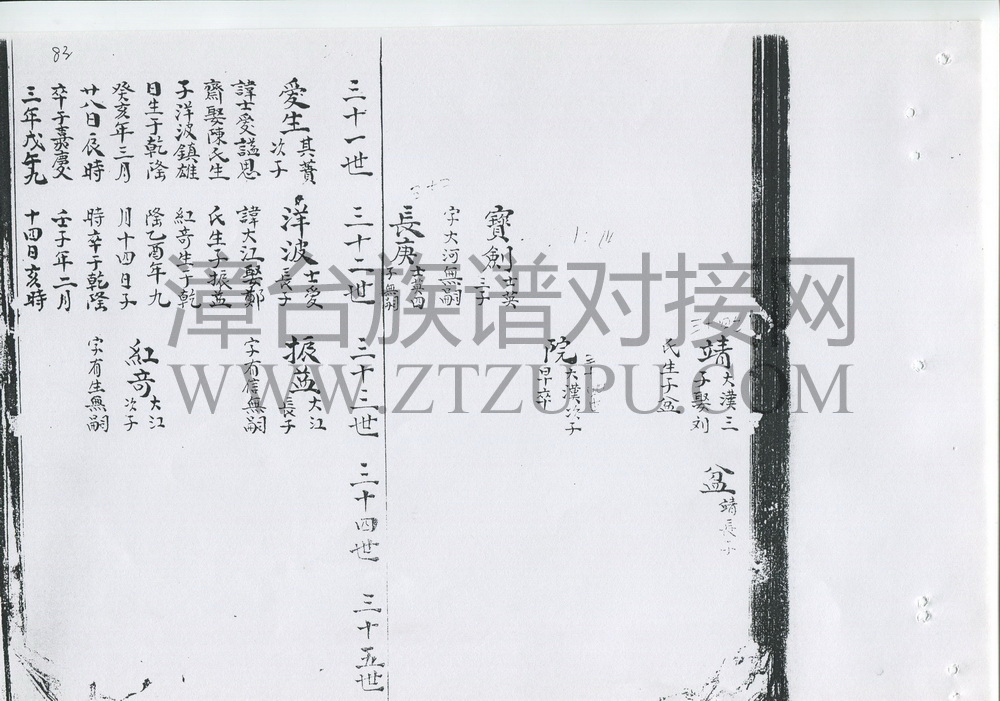 83
靖大漢三
子娶刘
氏生子盆
盆靖長子
院大漢次子
早卒
寶劍士英
三子
字大河無嗣
長庚士英四
子無嗣
三十一世
三十二世
三十三世
三十四世
三十五世
愛生其蕡
次子
諱士愛謚思
齋娶陳氏生
子洋波鎮雄
日生于乾隆
癸亥年三月
廿八日辰時
卒于嘉慶
三年戊午九
洋波士愛
長子
諱大江娶鄭
氏生子振益
紅奇生于乾
隆乙酉年九
月十四日子
時卒于乾隆
壬子年二月
十四日亥時
振益大江
長子
字有信無嗣
紅奇大江
次子
字有生無嗣
漳台族谱对接网
WWW.ZTZUPU.COM